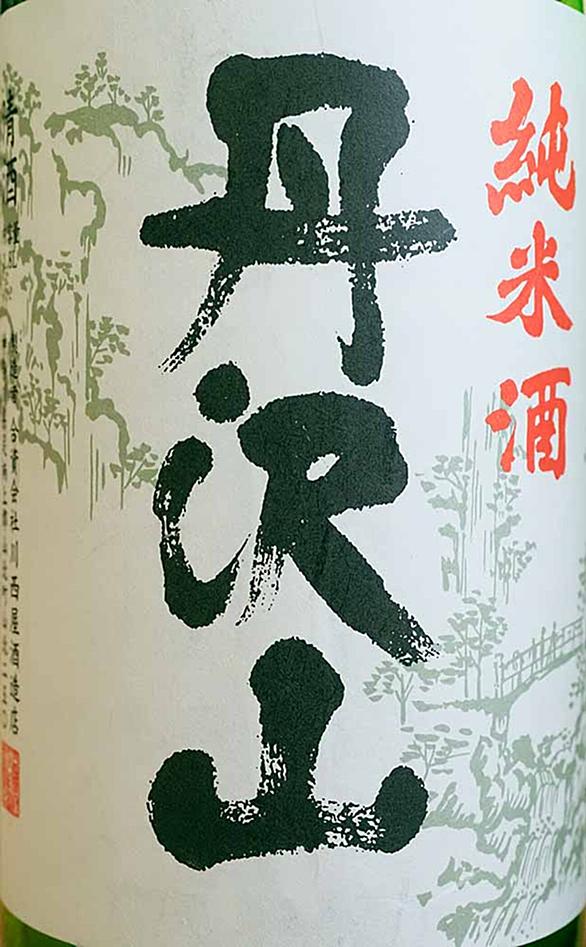 純米酒
丹沢山
清酒
製造者 合資会社川西屋酒造店